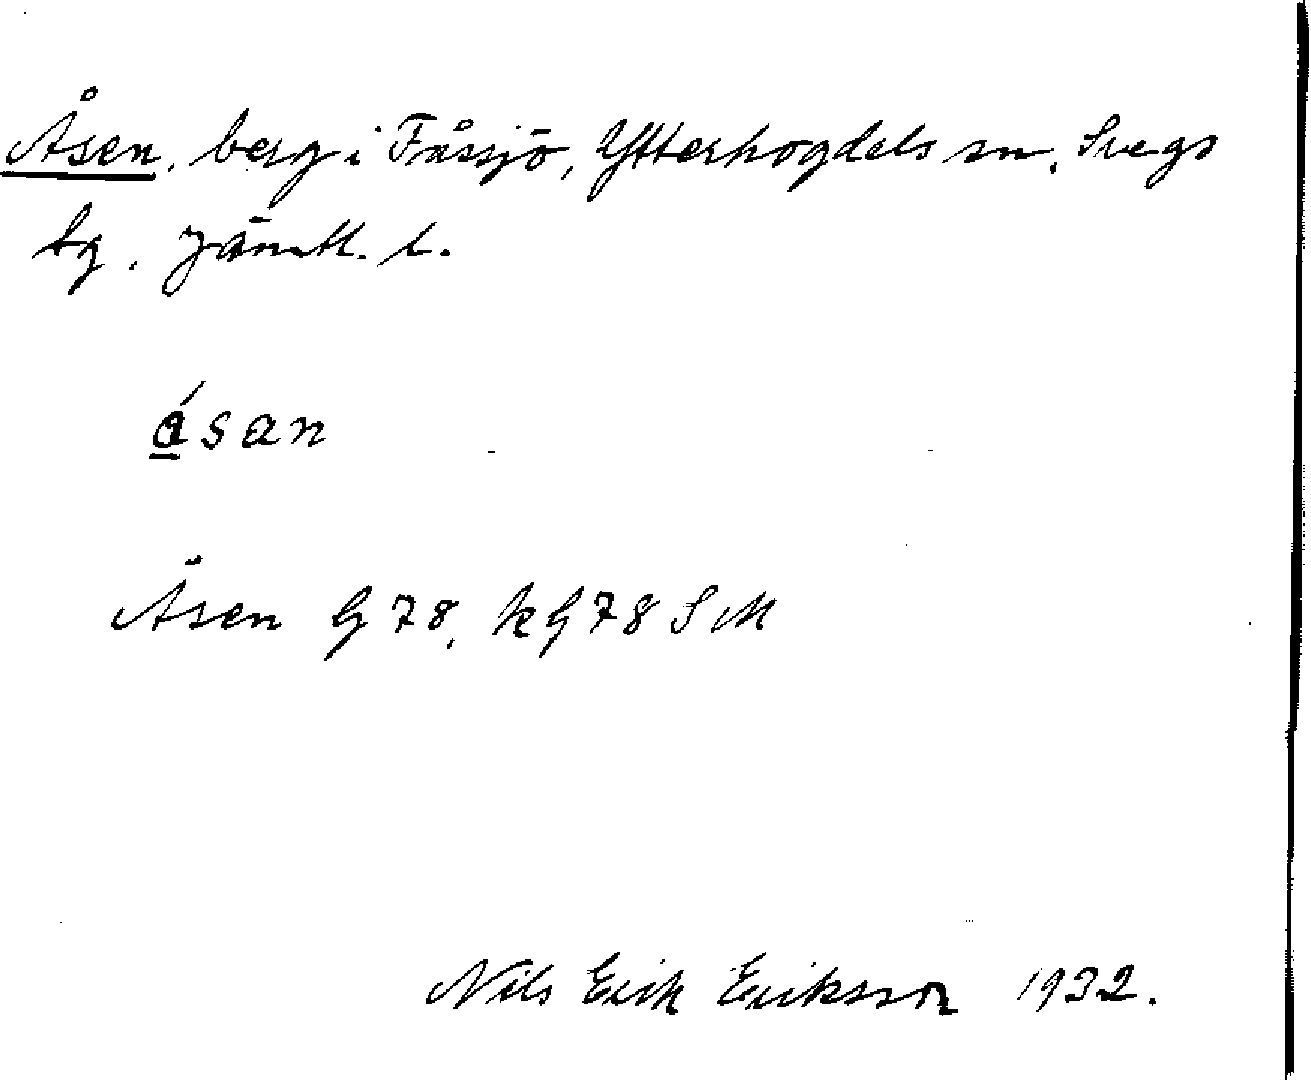 Åsen, berg i Fåssjö, Ytterhogdals sn, Svegs
tg, Jämtl. l.
ásan
Åsen G 78, kG 78 SM
Nils Erik Eriksson 1932.